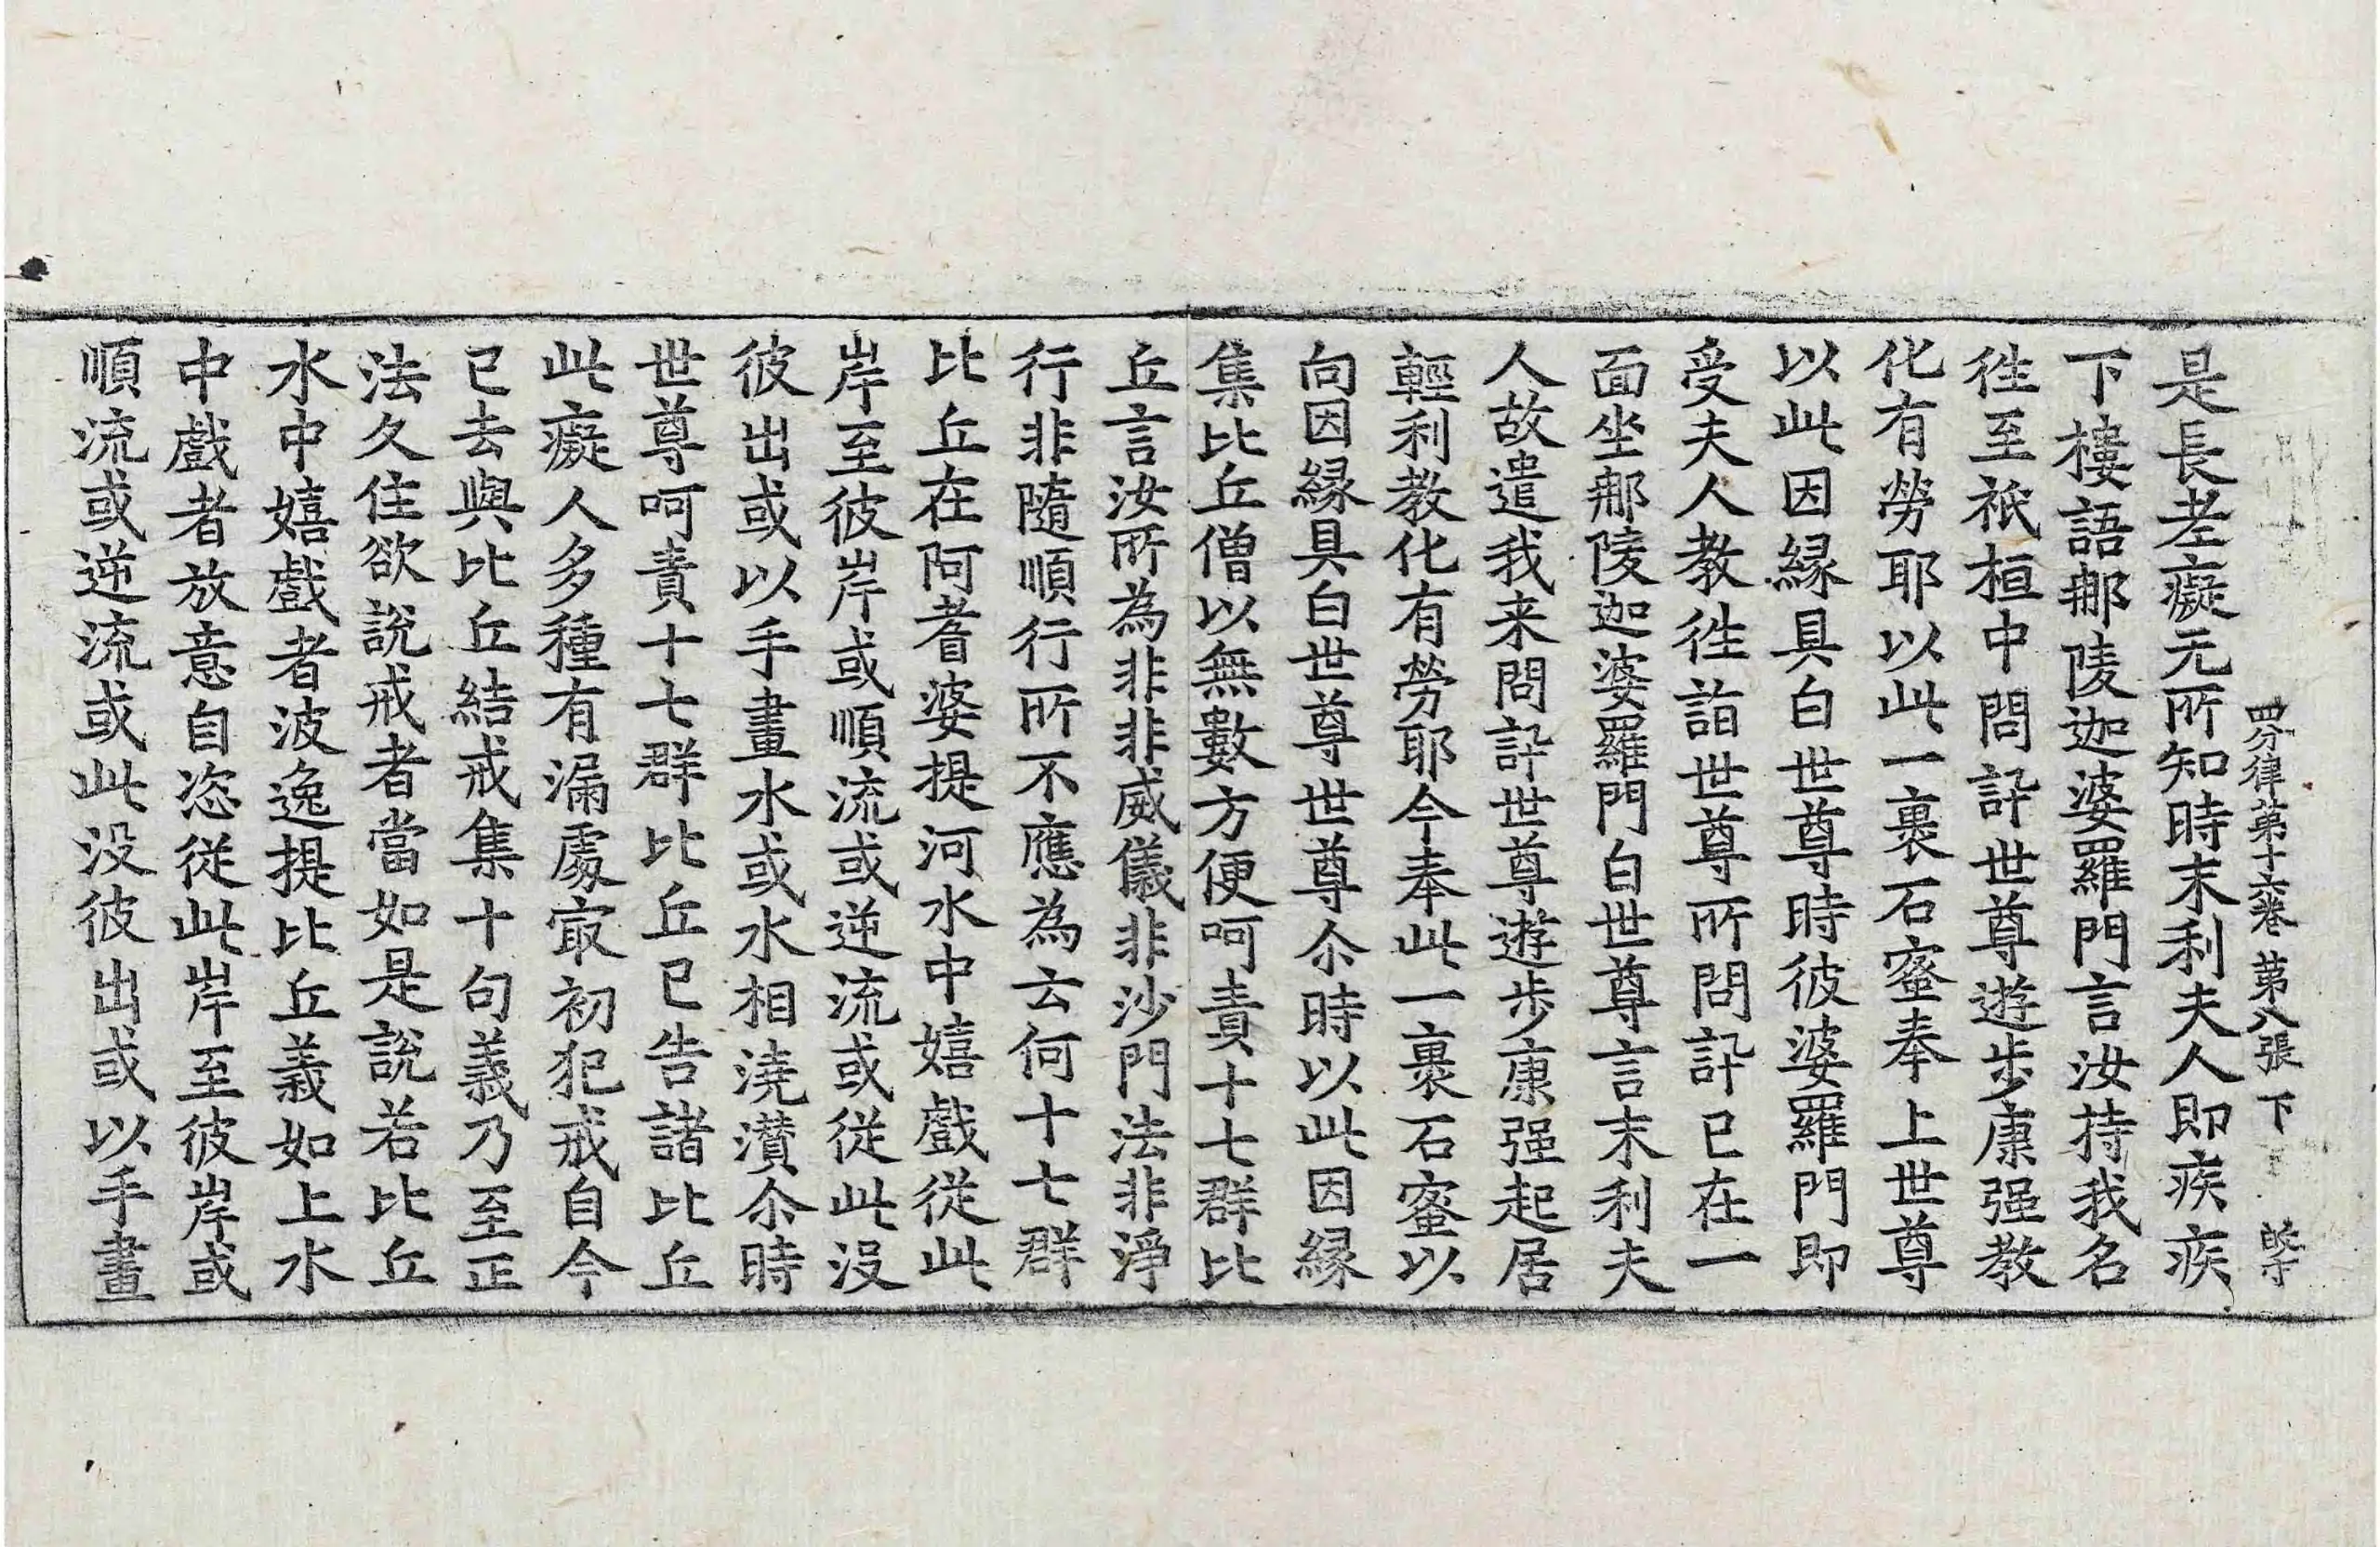 四分律第十六卷 第八張 下
是長老癡无所知時末利夫人即疾疾
下樓語那陵迦婆羅門言汝持我名
徃至祇桓中問訊世尊遊步康强教
化有勞耶以此一裹石蜜奉上世尊
以此因縁具白世尊時彼婆羅門即
受夫人教徃詣世尊所問訊已在一
面坐那陵迦婆羅門白世尊言末利夫
人故遣我来問訊世尊遊步康强起居
輕利教化有勞耶今奉此一裹石蜜以
向因縁具白世尊世尊尒時以此因縁
集比丘僧以無數方便呵責十七群比
丘言汝所為非非威儀非沙門法非淨
行非隨順行所不應為云何十七群
比丘在阿耆婆提河水中嬉戲從此
岸至彼岸或順流或逆流或從此没
彼出或以手畫水或水相澆灒尒時
世尊呵責十七群比丘已告諸比丘
此癡人多種有漏處㝡初犯戒自今
已去與比丘結戒集十句義乃至正
法久住欲說戒者當如是說若比丘
水中嬉戲者波逸提比丘義如上水
中戲者放意自恣從此岸至彼岸或
順流或逆流或此没彼出或以手畫